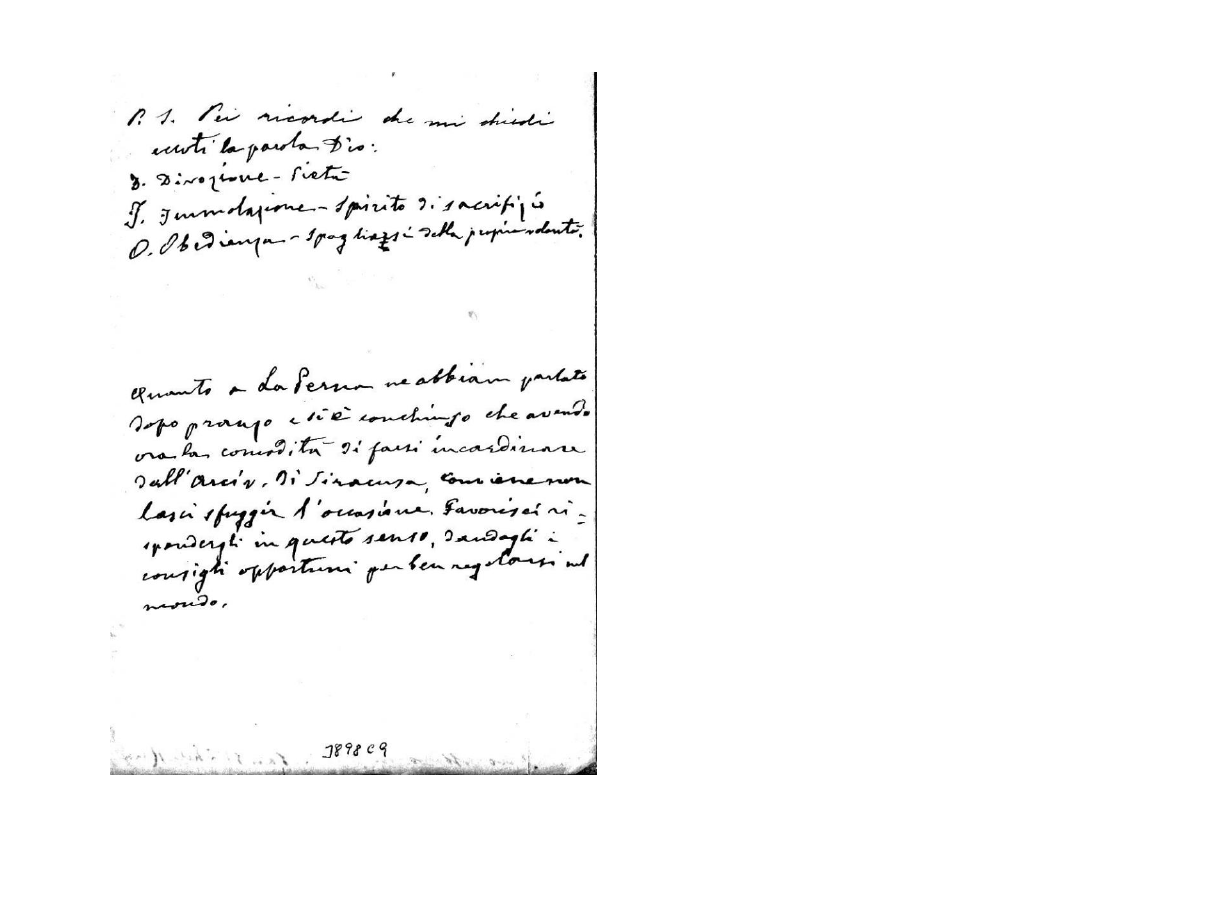 P. S. Pei ricordi che mi chiedi
eccoti la parola Dio:
D. Divozione - Pietà
I. Immolazione - Spirito di sacrifizio
O. Obedienza - Spogliarsi della propria volontà.
Quanto a La Perna ne abbiam parlato
dopo pranzo e si è conchiuso che avendo
ora la comodità di farsi incardinare
dall'Arciv. di Siracusa, conviene non
lasci sfuggir l'occasione. Favorisci ri=
spondergli in questo senso, dandogli i
consigli opportuni per ben regolarsi nel
mondo.
J898C9